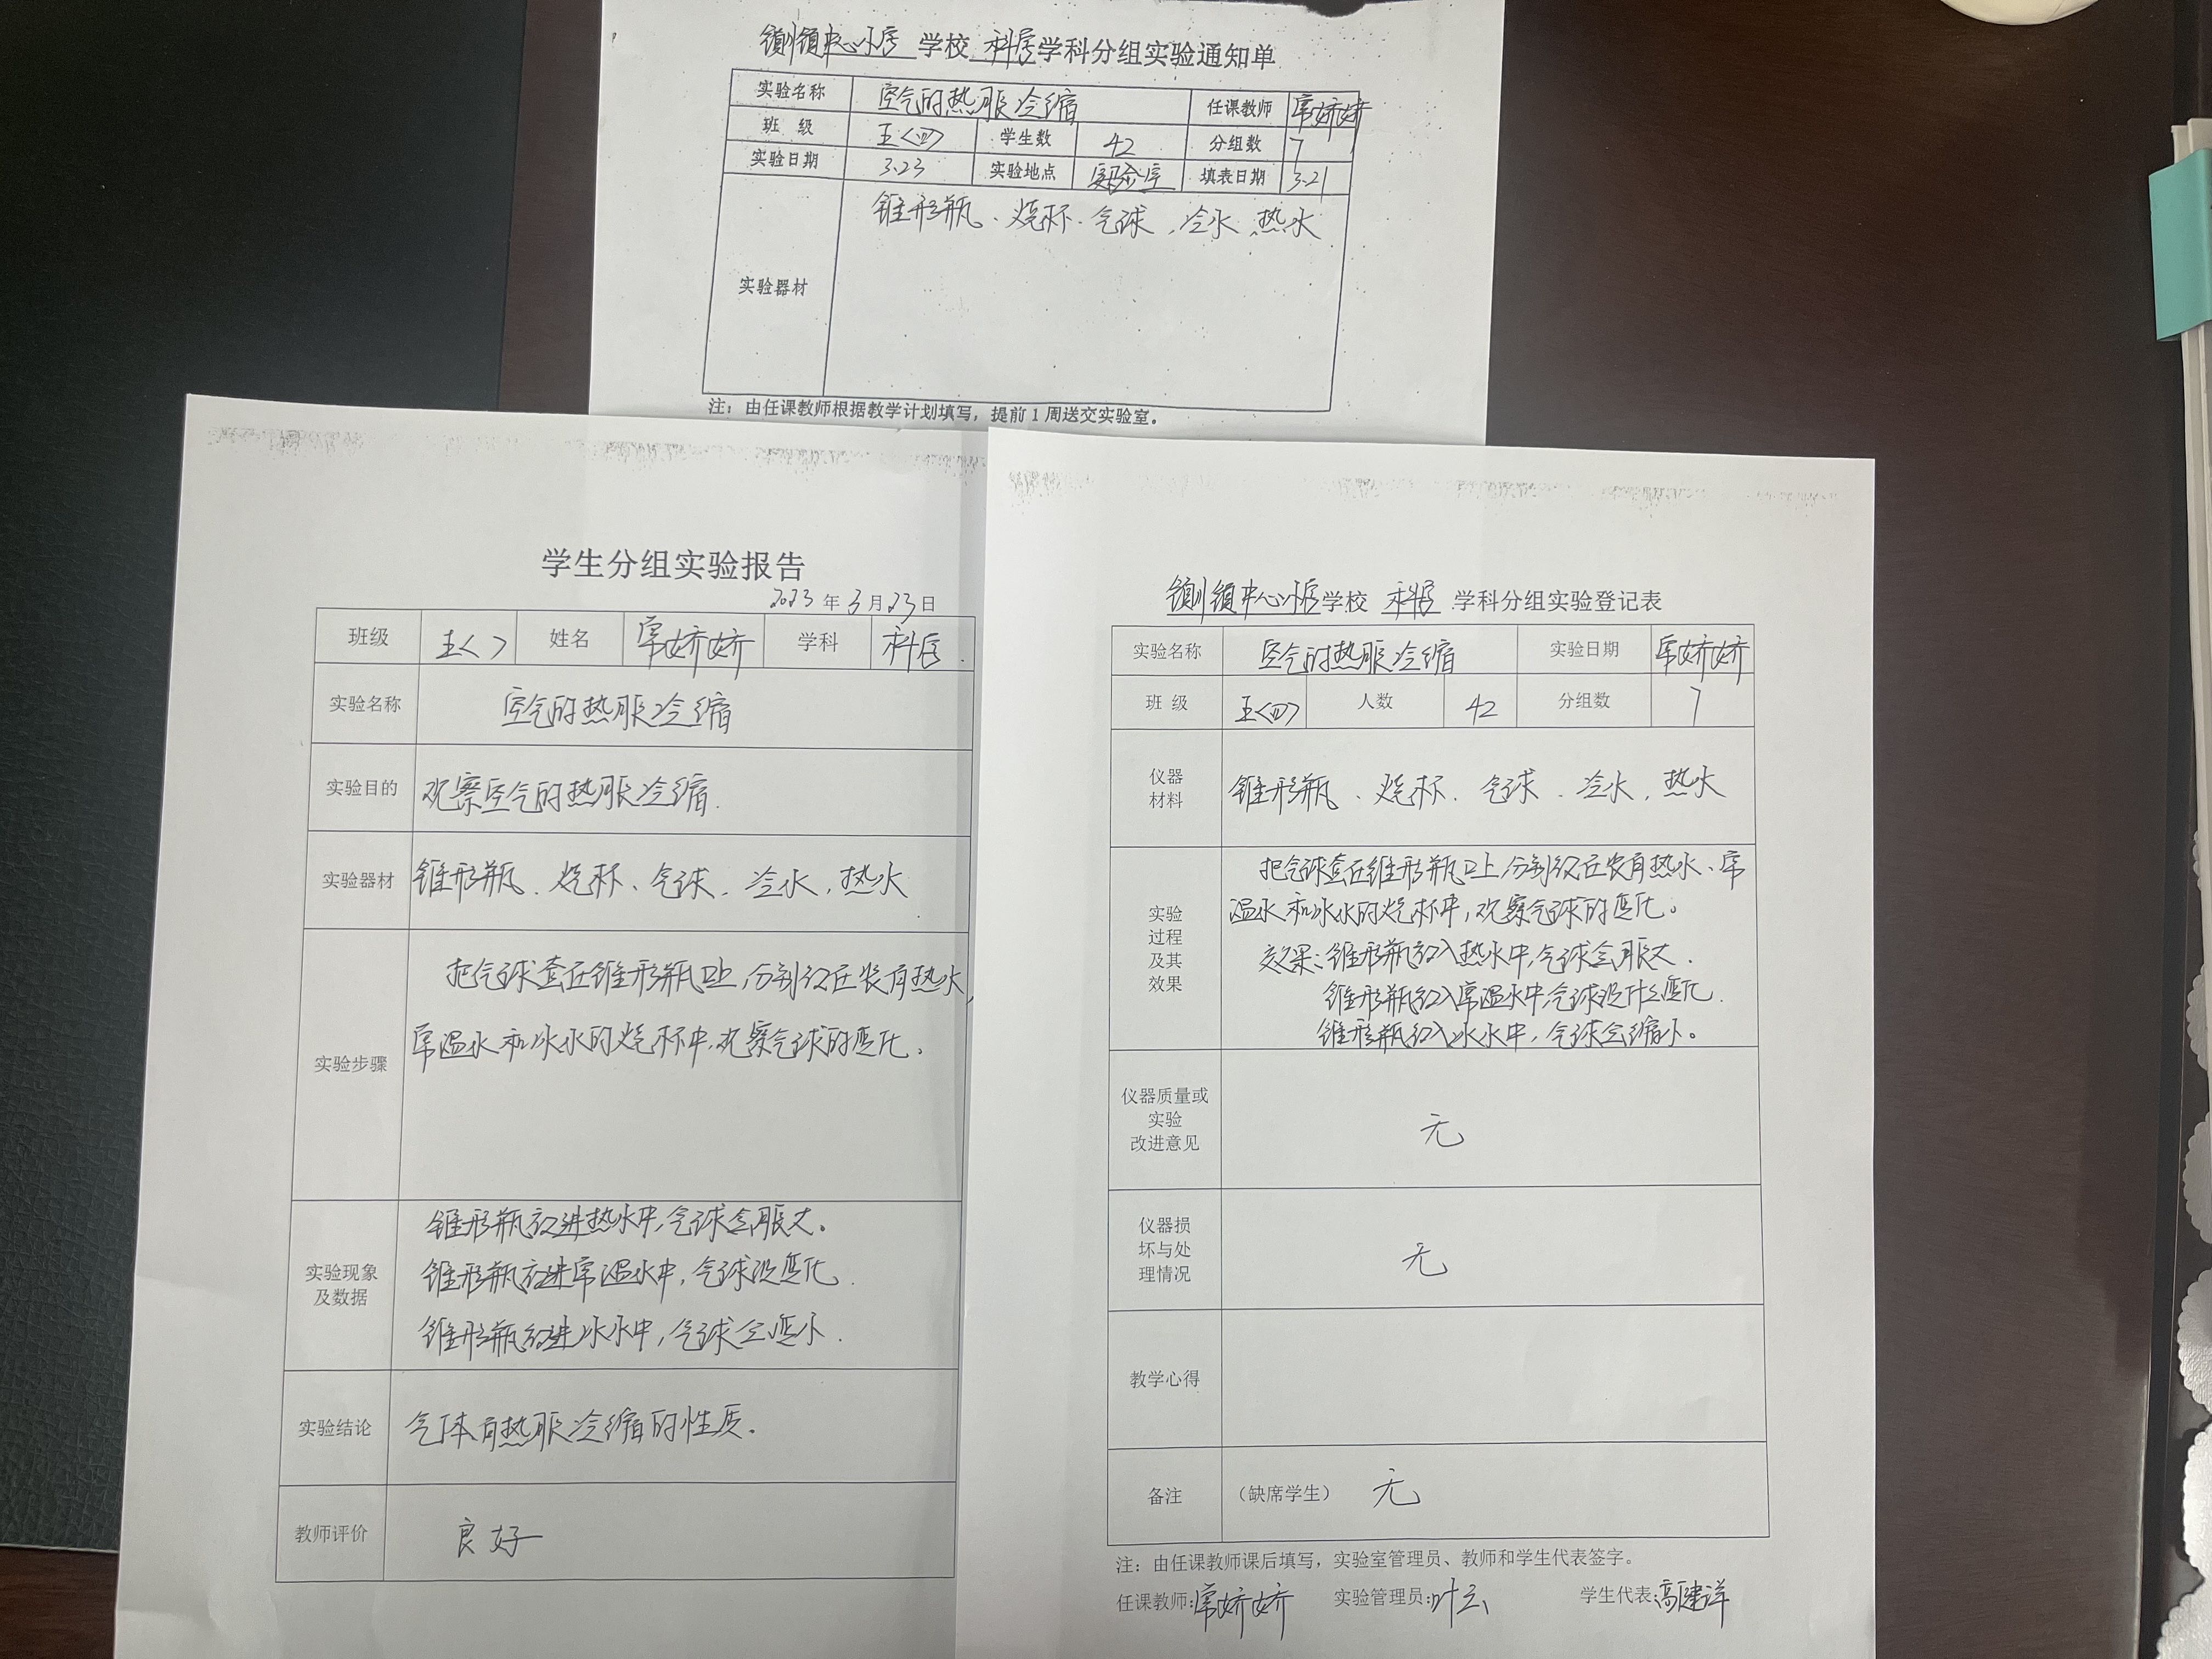 镇中心小学 学校 科学 学科分组实验通知单
实验名称 空气的热胀冷缩 任课教师 常娇娇
班 级 五<四> 学生数 42 分组数 7
实验日期 3.23 实验地点 实验室 填表日期 3.21
实验器材 锥形瓶、烧杯、气球、冷水、热水
注：由任课教师根据教学计划填写，提前1周送交实验室。
学生分组实验报告
2023年3月23日
班级 五< > 姓名 常娇娇 学科 科学
实验名称 空气的热胀冷缩
实验目的 观察空气的热胀冷缩.
实验器材 锥形瓶、烧杯、气球、冷水、热水
实验步骤
把气球套在锥形瓶口上,分别放在装有热水,
常温水和冰水的烧杯中,观察气球的变化。
实验现象
及数据
锥形瓶放进热水中,气球会胀大。
锥形瓶放进常温水中,气球没变化.
锥形瓶放进冰水中,气球会变小.
实验结论 气体有热胀冷缩的性质.
教师评价 良好
镇中心小学 学校 科学 学科分组实验登记表
实验名称 空气的热胀冷缩 实验日期 常娇娇
班 级 五<四> 人数 42 分组数 7
仪器
材料
锥形瓶、烧杯、气球、冷水、热水
实验
过程
及其
效果
把气球套在锥形瓶口上,分别放在装有热水、常
温水和冰水的烧杯中,观察气球的变化。
效果:锥形瓶放入热水中,气球会胀大.
锥形瓶放入常温水中,气球没什么变化.
锥形瓶放入冰水中,气球会缩小。
仪器质量或
实验
改进意见
无
仪器损
坏与处
理情况
无
教学心得
备注 （缺席学生） 无
注：由任课教师课后填写，实验室管理员、教师和学生代表签字。
任课教师:常娇娇 实验管理员:叶云 学生代表:高健洋